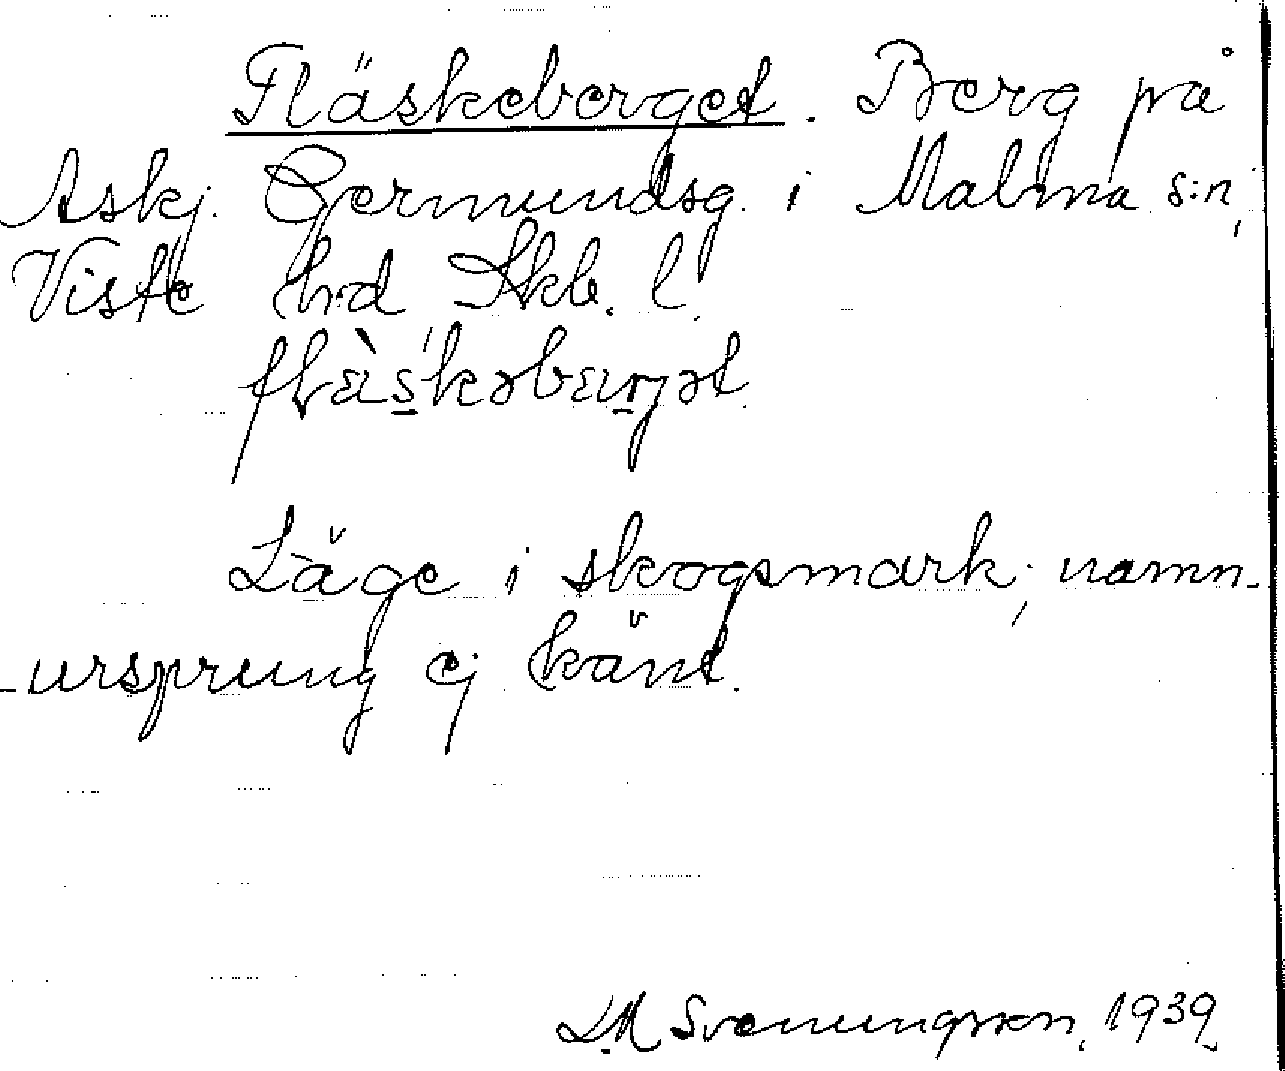 Fläskeberget. Berg på
Askj. Germundsg. i Malma s:n,
Viste hrd Skb. l.
Läge i skogsmark; namn-
ursprung ej känt.
Svenungsson, 1939